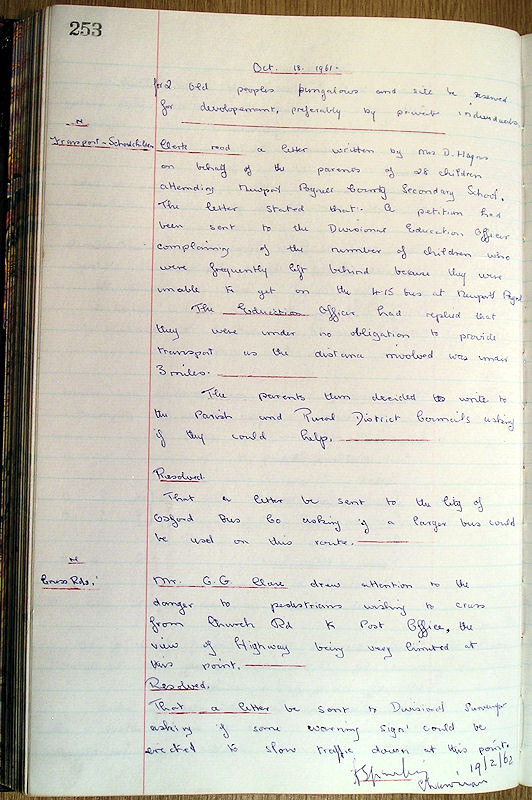 253
Oct. 13. 1961.
for 2 Old peoples bungalows and still be reserved
for developement, preferably by private individuals.
N
Transport - Schoolchildren
Clerk read a letter written by Mrs. D. Hagas
on behalf of the parents of 28 children
attending Newport Pagnell County Secondary School.
The letter stated that: A petition had
been sent to the Divisional Education Officer
complaining of the number of children who
were frequently left behind because they were
unable to get on the 4.15 bus at Newport Pagnell
The Education Officer had replied that
they were under no obligation to provide
transport as the distance involved was under
3 miles.
The parents then decided to write to
the Parish and Rural District Councils asking
if they could help.
Resolved.
That a letter be sent to the City of
Oxford Bus Co asking if a larger bus could
be used on this route.
N
Cross Rds.
Mr. G.G. Clare drew attention to the
danger to pedestrians wishing to cross
from Church Rd to Post Office, the
view of Highway being very limited at
this point.
Resolved.
That a letter be sent to Divisional Surveyor
asking if some warning sign could be
erected to slow traffic down at this point.
Chairman 19/2/62